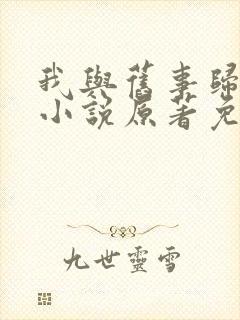 我與舊事歸
小說原著免
九世靈雪